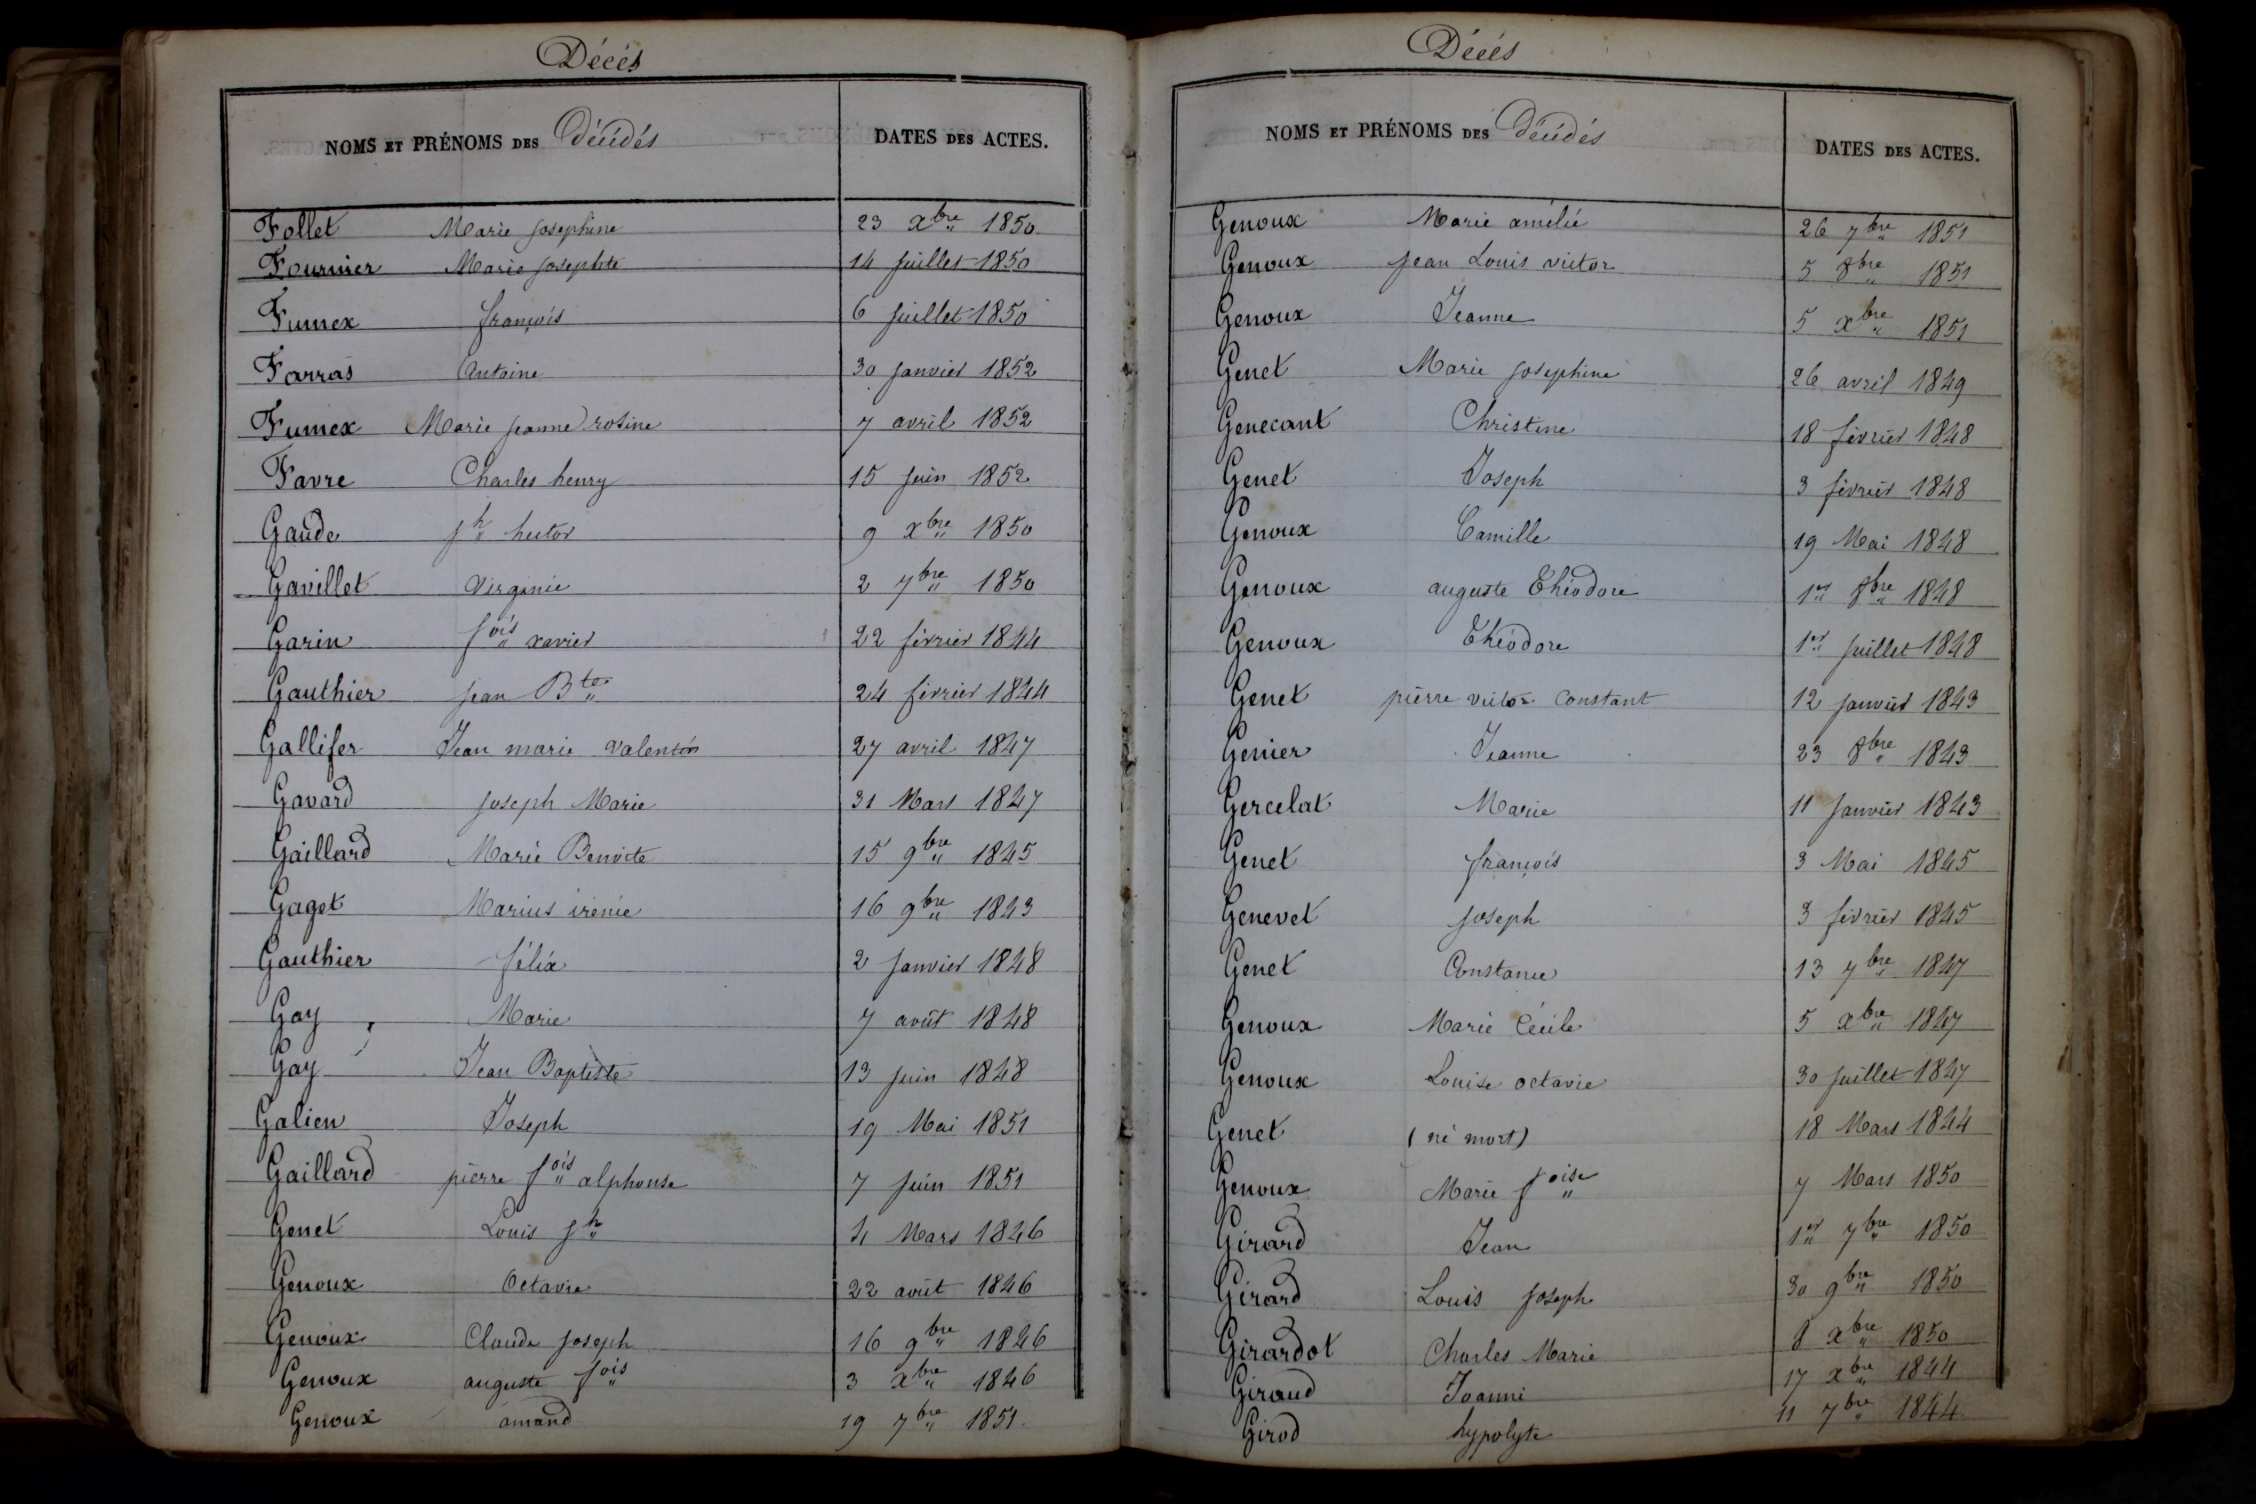 Décés
NOMS ET PRÉNOMS DES Décédés DATES DES ACTES.
Follet Marie Josephine 23 Xbre 1850
Fournier Marie Josephte 14 Juillet 1850
Fumex françois 6 Juillet 1850
Farras Antoine 30 Janvier 1852
Fumex Marie Jeanne rosine 7 avril 1852
Favre Charles henry 15 Juin 1852
Gaude Jh hector 9 Xbre 1850
Gavillet Virginie 2 7bre 1850
Garin fois xavier 22 février 1844
Gauthier Jean Bte 24 février 1844
Gallifer Jean marie valentin 27 avril 1847
Gavard Joseph Marie 31 Mars 1847
Gaillard Marie Benoite 15 9bre 1845
Gaget Marius irénie 16 9bre 1843
Gauthier félix 2 Janvier 1848
Gay Marie 7 août 1848
Gay Jean Baptiste 13 Juin 1848
Galien Joseph 19 Mai 1851
Gaillard pierre fois alphonse 7 Juin 1851
Genet Louis Jh 4 Mars 1846
Genoux Octavie 22 août 1846
Genoux Claude Joseph 16 9bre 1846
Genoux auguste fois 3 Xbre 1846
Genoux amand 19 7bre 1851
Décés
NOMS ET PRÉNOMS DES Décédés DATES DES ACTES.
Genoux Marie amélie 26 7bre 1851
Genoux Jean Louis victor 5 8bre 1851
Genoux Jeanne 5 Xbre 1851
Genet Marie Josephine 26 avril 1849
Genecant Christine 18 février 1848
Genet Joseph 3 février 1848
Genoux Camille 19 Mai 1848
Genoux auguste Théodore 1er 8bre 1848
Genoux Théodore 1er Juillet 1848
Genet pierre victor Constant 12 Janvier 1843
Genier Jeanne 23 8bre 1843
Gercelat Marie 11 Janvier 1843
Genet françois 3 Mai 1845
Genevet Joseph 3 février 1845
Genet Constance 13 7bre 1847
Genoux Marie Cécile 5 Xbre 1847
Genoux Louise octavie 30 Juillet 1847
Genet (né mort) 18 Mars 1844
Genoux Marie foise 7 Mars 1850
Girard Jean 1er 7bre 1850
Girard Louis Joseph 30 9bre 1850
Girardot Charles Marie 8 Xbre 1850
Giraud Joanni 17 Xbre 1844
Girod hypolyte 11 7bre 1844